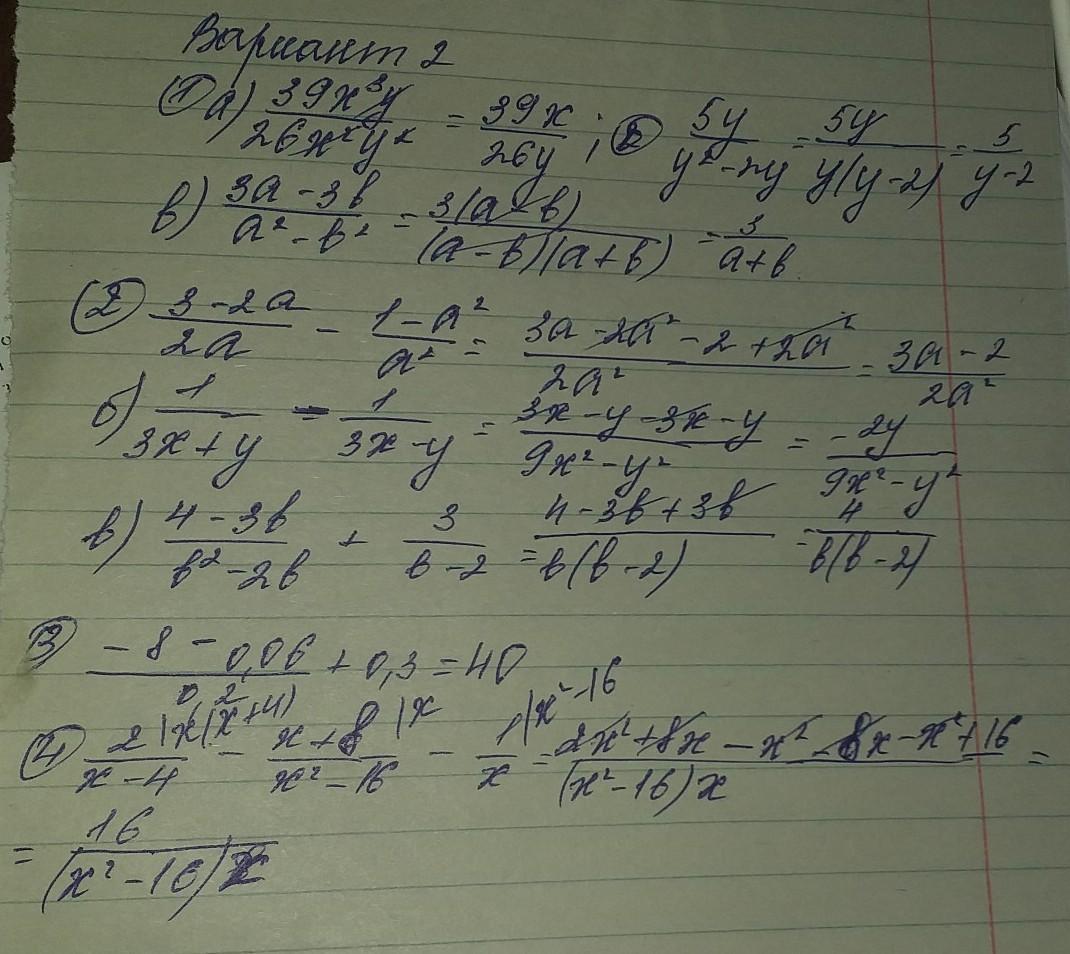 Вариант 2
① а) 39x³y/26x²y² = 39x/26y ; ② 5y/y²-2y = 5y/y(y-2) = 5/y-2
в) 3a-3b/a²-b² = 3(a-b)/(a-b)(a+b) = 3/a+b
② 3-2a/2a - 1-a²/a² = 3a-2a²-2+2a²/2a² = 3a-2/2a²
б) 1/3x+y - 1/3x-y = 3x-y-3x-y/9x²-y² = -2y/9x²-y²
в) 4-3b/b²-2b + 3/b-2 = 4-3b+3b/b(b-2) = 4/b(b-2)
③ -8-0,06/0,2 + 0,3 = 40
④ 2|x(x+4)/x-4 - x+8|x/x²-16 - 1|x²-16/x = 2x²+8x-x²-8x-x²+16/(x²-16)x =
= 16/(x²-16)x